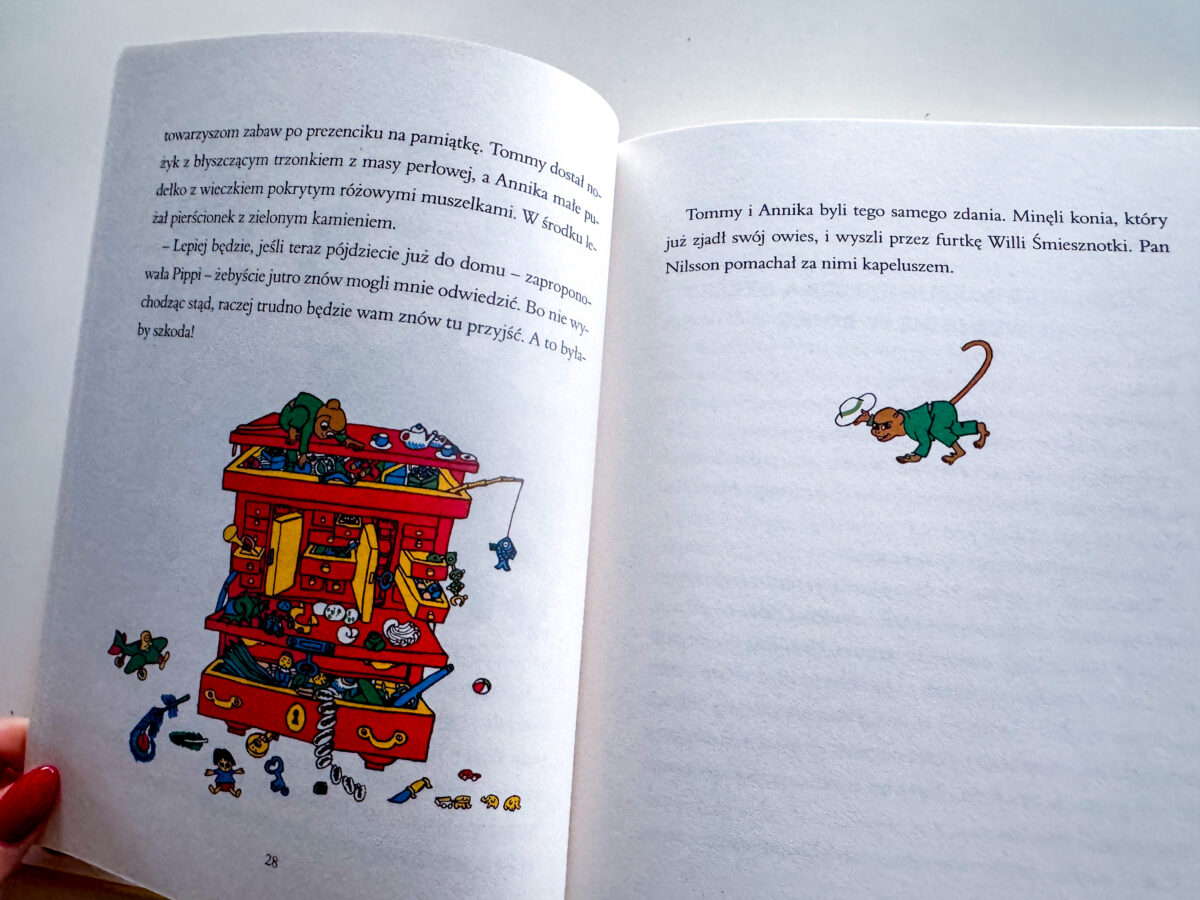 towarzyszom zabaw po prezenciku na pamiątkę. Tommy dostał no-
żyk z błyszczącym trzonkiem z masy perłowej, a Annika małe pu-
dełko z wieczkiem pokrytym różowymi muszelkami. W środku le-
żał pierścionek z zielonym kamieniem.
– Lepiej będzie, jeśli teraz pójdziecie już do domu – zapropono-
wała Pippi – żebyście jutro znów mogli mnie odwiedzić. Bo nie wy-
chodząc stąd, raczej trudno będzie wam znów tu przyjść. A to była-
by szkoda!
28
Tommy i Annika byli tego samego zdania. Minęli konia, który
już zjadł swój owies, i wyszli przez furtkę Willi Śmiesznotki. Pan
Nilsson pomachał za nimi kapeluszem.